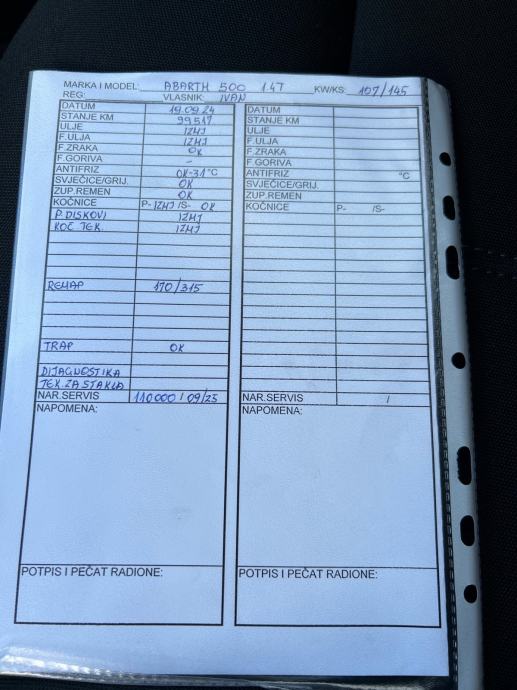 MARKA I MODEL: ABARTH 500 1.4T KW/KS: 107/145
REG: VLASNIK: IVAN
DATUM 19.09.24
STANJE KM 99517
ULJE IZMJ
F.ULJA IZMJ
F.ZRAKA OK
F.GORIVA -
ANTIFRIZ OK-31°C
SVJEĆICE/GRIJ. OK
ZUP.REMEN OK
KOČNICE P- IZMJ /S- OK
P. DISKOVI IZMJ
KOČ TEK. IZMJ
REMAP 170/315
TRAP OK
DIJAGNOSTIKA
TEK. ZA STAKLA
NAR.SERVIS 110000 / 09/25
NAPOMENA:
POTPIS I PEČAT RADIONE:
DATUM
STANJE KM
ULJE
F.ULJA
F.ZRAKA
F.GORIVA
ANTIFRIZ °C
SVJEĆICE/GRIJ.
ZUP.REMEN
KOČNICE P- /S-
NAR.SERVIS /
NAPOMENA:
POTPIS I PEČAT RADIONE: